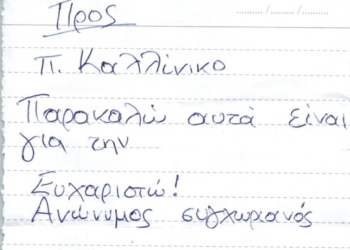 Προς
π. Καλλίνικο
Παρακαλώ αυτά είναι
για την
Ευχαριστώ!
Ανώνυμος συγχωριανός